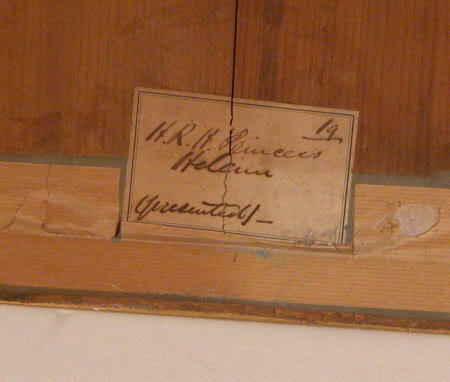 19
H.R.H. Princess
Helena
(presented)